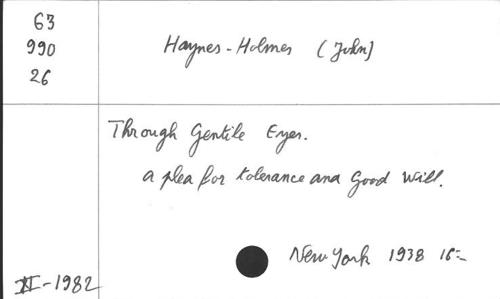 63
990
26
Haynes-Holmes (John)
Through Gentile Eyes.
a plea for tolerance and Good Will.
New York 1938 16=
XI-1982